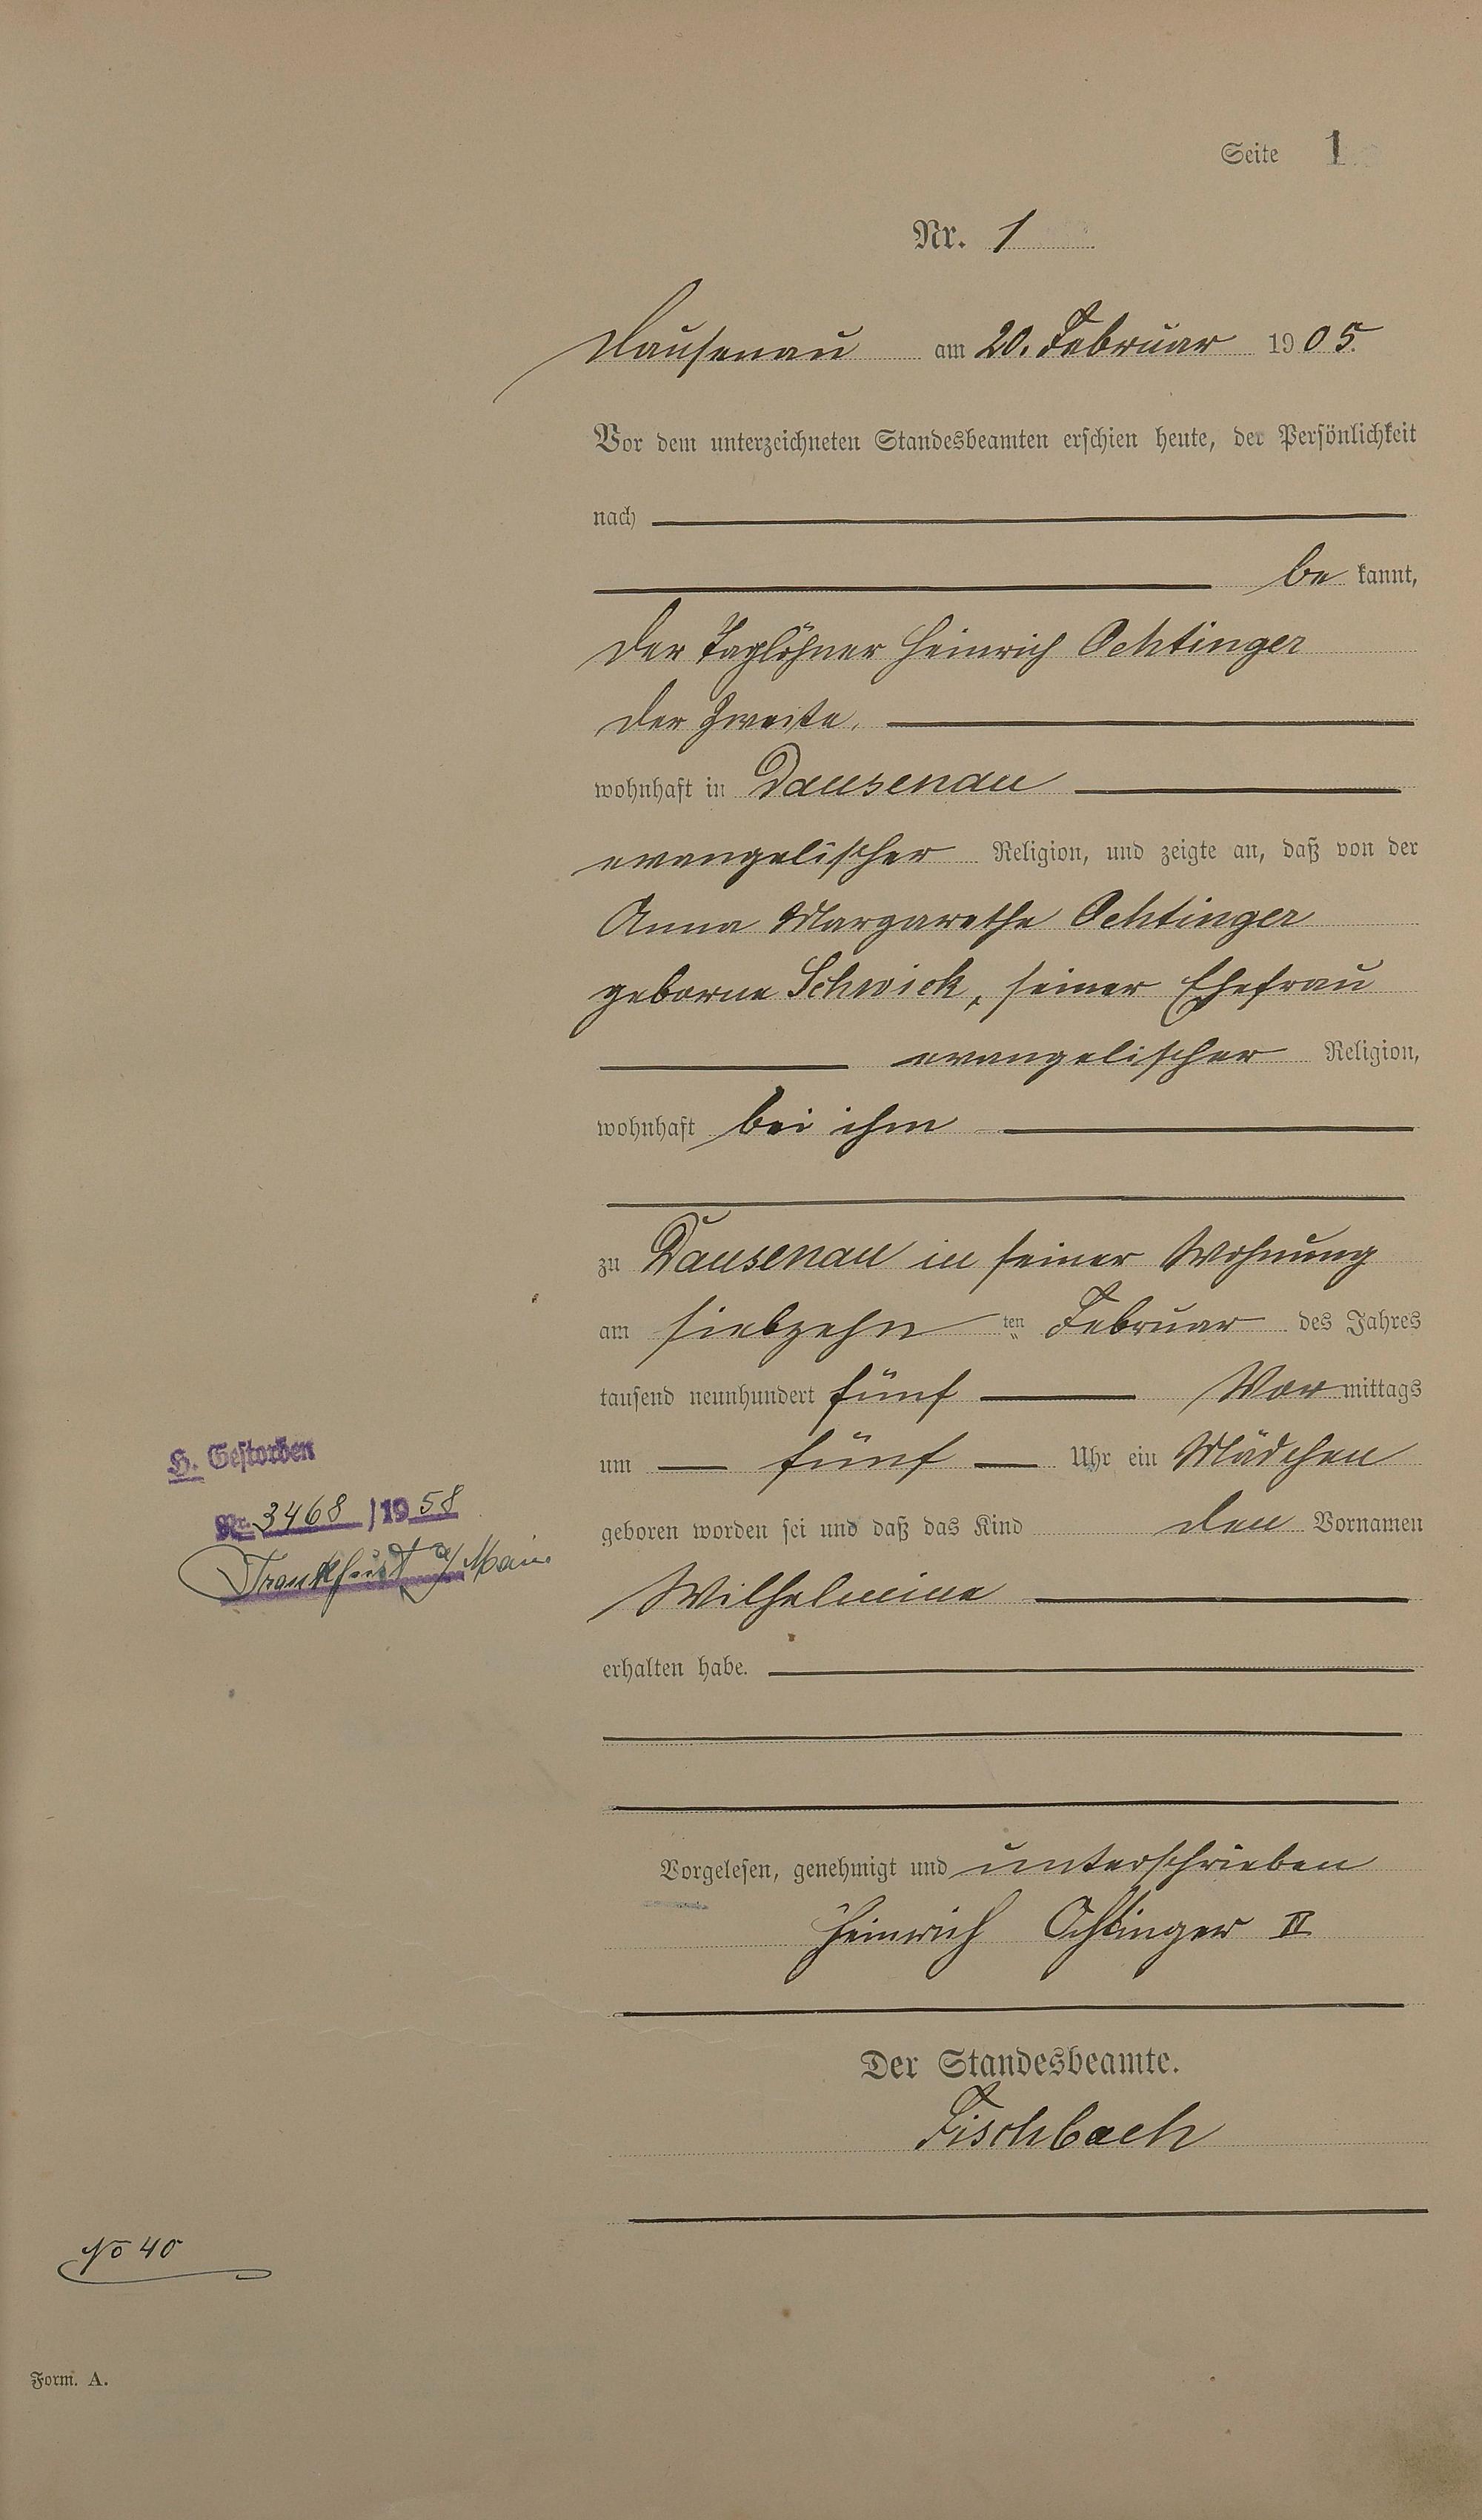 Seite 1
Nr. 1
Dausenau am 20. Februar 1905.
Vor dem unterzeichneten Standesbeamten erschien heute, der Persönlichkeit
nach
be kannt,
der Taglöhner Heinrich Ochtinger
der Zweite,
wohnhaft in Dausenau
evangelischer Religion, und zeigte an, daß von der
Anna Margarethe Ochtinger
geborne Schwick, seiner Ehefrau
evangelischer Religion,
wohnhaft bei ihm
zu Dausenau in seiner Wohnung
am siebzehn ten Februar des Jahres
tausend neunhundert fünf Vormittags
um fünf Uhr ein Mädchen
geboren worden sei und daß das Kind den Vornamen
Wilhelmine
erhalten habe.
Vorgelesen, genehmigt und unterschrieben
Heinrich Ochtinger II
Der Standesbeamte.
Fischbach
H. Gestorben
Nr. 3468 / 1958
Frankfurt a/Main
No 40
Form. A.